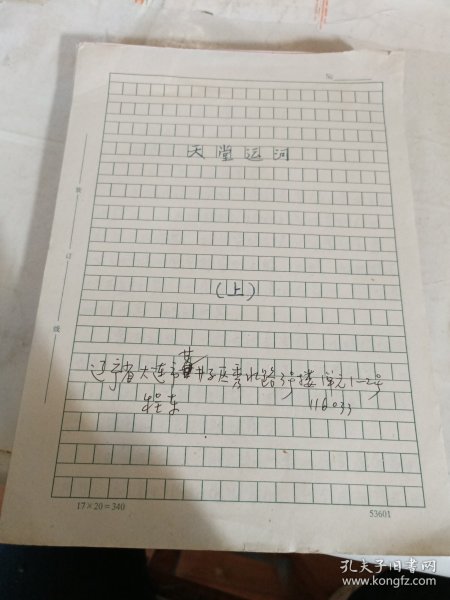 №
天堂运河
(上)
辽宁省大连市甘井子区 路3号楼1单元1-2号
程东
装
订
线
17×20=340
53601
孔夫子旧书网
www.kongfz.com